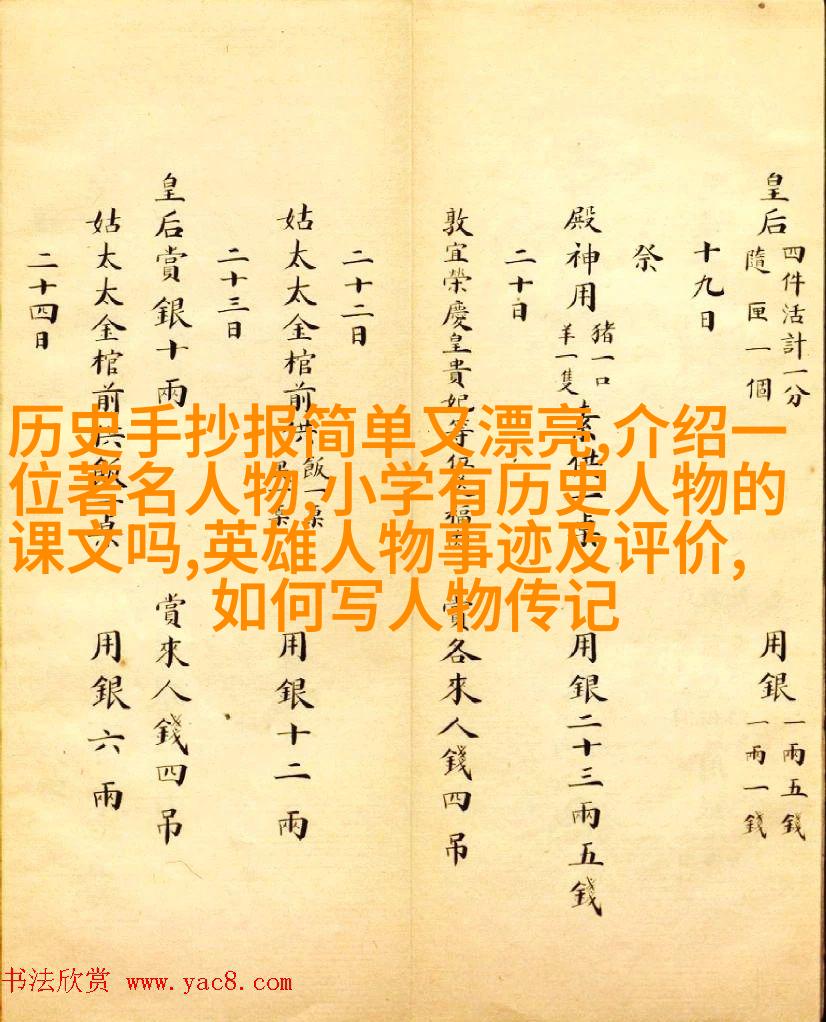 皇后
四件活計一分
隨匣一個
用銀
一兩五錢
一兩一錢
十九日
祭
殿神用
猪一口
羊一隻
素供一桌
用銀二十三兩五錢
二十日
敦宜榮慶皇貴妃等位
賞各來人錢四吊
二十二日
姑太太金棺前供
飯一桌
用銀十二兩
二十三日
皇后賞銀十兩
賞來人錢四吊
姑太太金棺前供飯一桌
用銀六兩
二十四日
历史手抄报简单又漂亮,介绍一
位著名人物,小学有历史人物的
课文吗,英雄人物事迹及评价,
如何写人物传记
书法欣赏 www.yac8.com